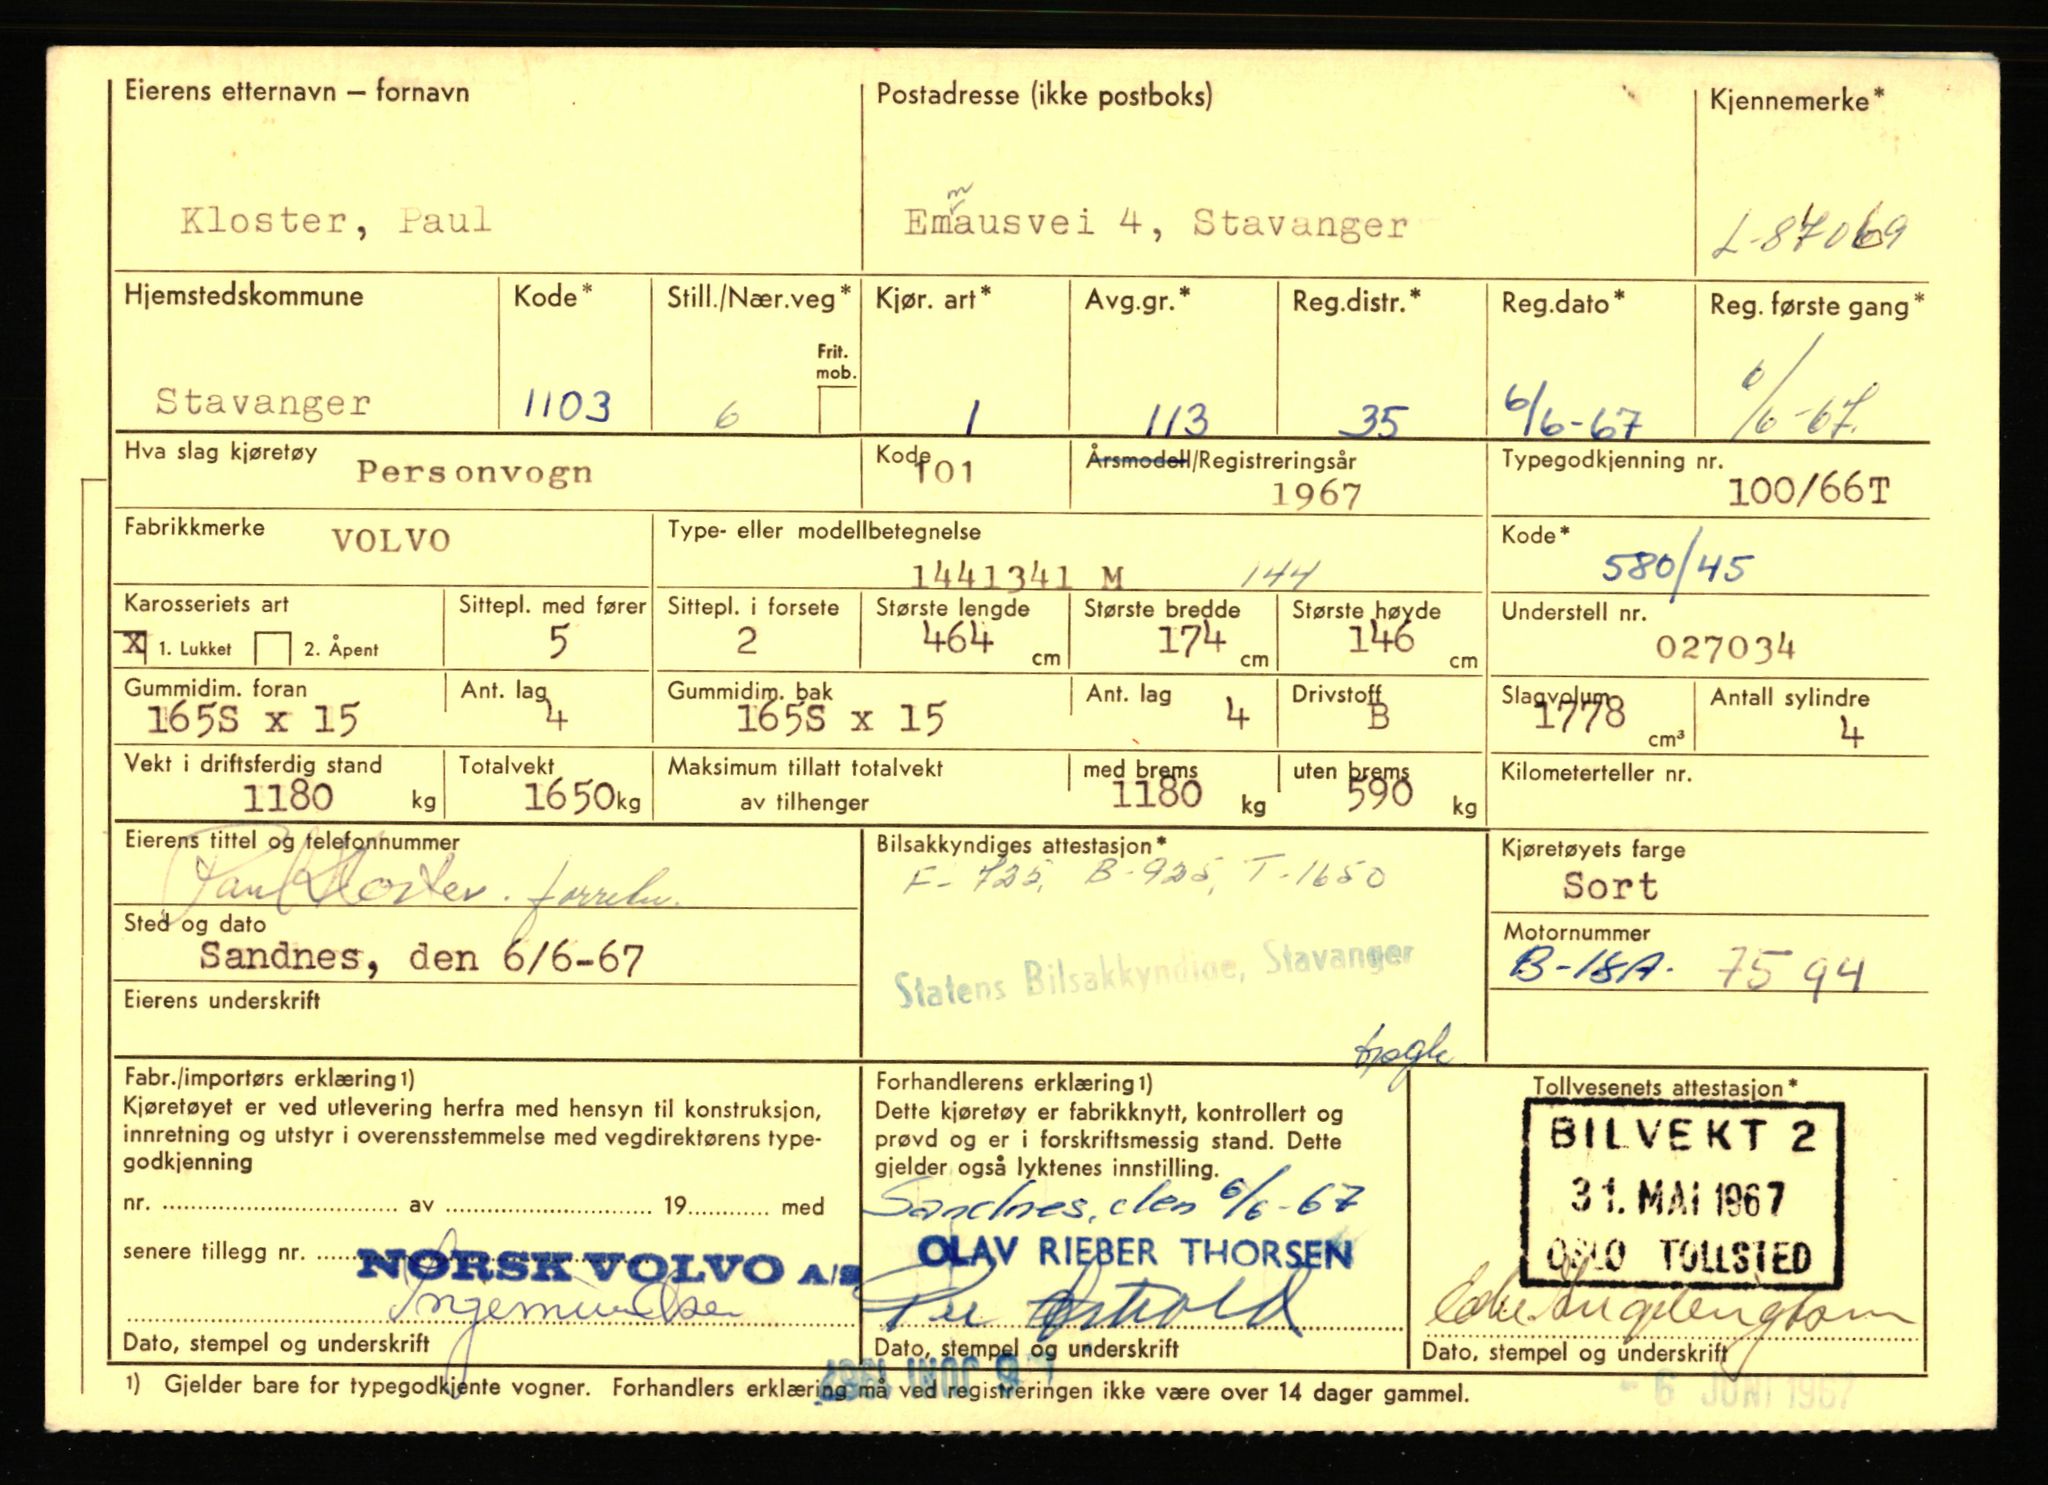 Eierens etternavn — fornavn
Postadresse (ikke postboks)
Kjennemerke*
Kloster, Paul
Emmausvei 4, Stavanger
L-87069
Hjemstedskommune
Kode*
Still./Nær.veg*
Frit. mob.
Kjør. art*
Avg.gr.*
Reg.distr.*
Reg.dato*
Reg. første gang*
Stavanger
1103
6
1
113
35
6/6-67
6/6-67.
Hva slag kjøretøy Personvogn
Kode 101
Årsmodell/Registreringsår
1967
Typegodkjenning nr.
100/66T
Fabrikkmerke VOLVO
Type- eller modellbetegnelse
1441341 M 144
Kode*
580/45
Karosseriets art
X 1. Lukket 2. Åpent
Sittepl. med fører
5
Sittepl. i forsete
2
Største lengde
464 cm
Største bredde
174 cm
Største høyde
146 cm
Understell nr.
027034
Gummidim. foran
165S x 15
Ant. lag
4
Gummidim. bak
165S x 15
Ant. lag
4
Drivstoff
B
Slagvolum
1778 cm³
Antall sylindre
4
Vekt i driftsferdig stand
1180 kg
Totalvekt
1650 kg
Maksimum tillatt totalvekt
av tilhenger
med brems
1180 kg
uten brems
590 kg
Kilometerteller nr.
Eierens tittel og telefonnummer
Paul Kloster.
Bilsakkyndiges attestasjon*
F- 725, B-925, T-1650
Statens Bilsakkyndige, Stavanger
Kjøretøyets farge
Sort
Sted og dato
Sandnes, den 6/6-67
Motornummer
B-18A. 7594
Eierens underskrift
Fabr./importørs erklæring 1)
Kjøretøyet er ved utlevering herfra med hensyn til konstruksjon,
innretning og utstyr i overensstemmelse med vegdirektørens type-
godkjenning
nr. av 19 med
senere tillegg nr.
NORSK VOLVO A/S
Dato, stempel og underskrift
Forhandlerens erklæring 1)
Dette kjøretøy er fabrikknytt, kontrollert og
prøvd og er i forskriftsmessig stand. Dette
gjelder også lyktenes innstilling.
Sandnes, den 6/6-67
OLAV RIEBER THORSEN
Dato, stempel og underskrift
Tollvesenets attestasjon*
BILVEKT 2
31. MAI 1967
OSLO TOLLSTED
Dato, stempel og underskrift
1) Gjelder bare for typegodkjente vogner. Forhandlers erklæring må ved registreringen ikke være over 14 dager gammel.
JUNI 1967
- 6 JUNI 1967